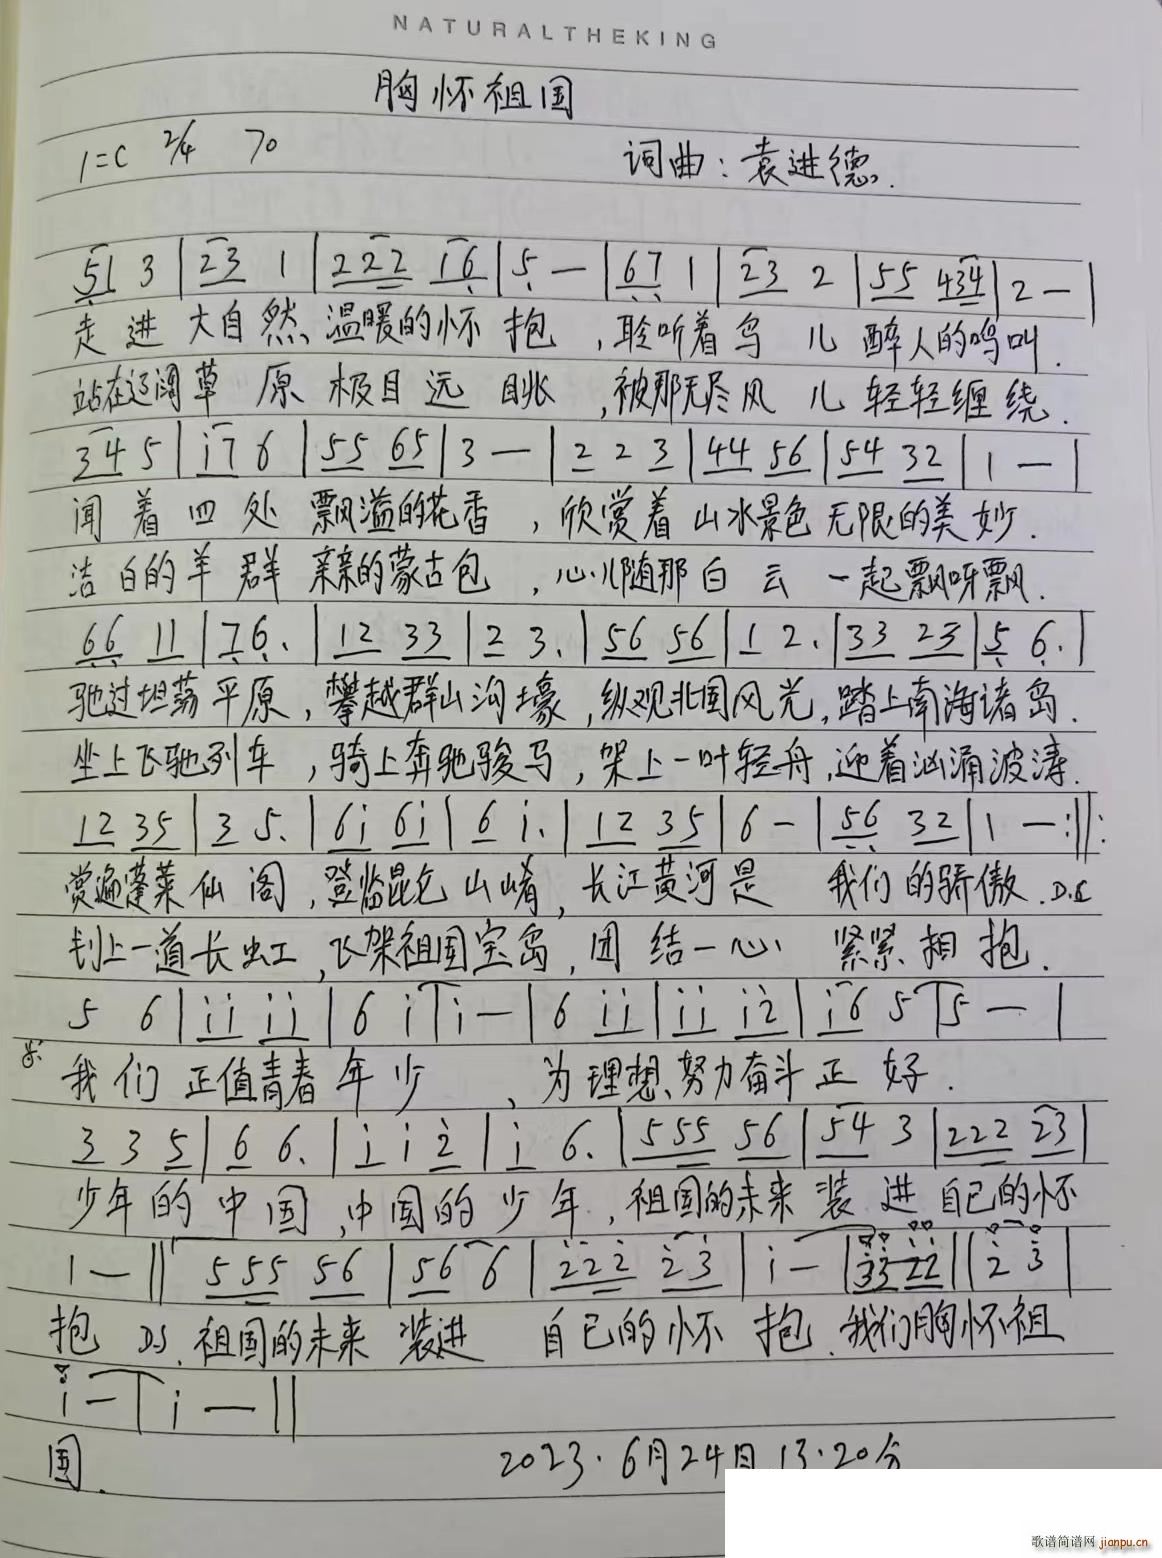 NATURALTHEKING
胸怀祖国
1=C 2/4 70 词曲：袁进德.
51 3 | 23 1 | 222 16 | 5 — | 67 1 | 23 2 | 55 434 | 2 — |
走进大自然温暖的怀抱，聆听着鸟儿醉人的鸣叫.
站在辽阔草原极目远眺，被那无尽风儿轻轻缠绕.
34 5 | i7 6 | 55 65 | 3 — | 2 2 3 | 44 56 | 54 32 | 1 — |
闻着四处飘溢的花香，欣赏着山水景色无限的美妙.
洁白的羊群亲亲的蒙古包，心儿随那白云一起飘呀飘.
66 11 | 76. | 12 33 | 2 3. | 56 56 | 1 2. | 33 23 | 5 6. |
驰过坦荡平原，攀越群山沟壕，纵观北国风光，踏上南海诸岛.
坐上飞驰列车，骑上奔驰骏马，架上一叶轻舟，迎着汹涌波涛.
12 35 | 3 5. | 6i 6i | 6 i. | 12 35 | 6 — | 56 32 | 1 — :||:
赏遍蓬莱仙阁，登临昆仑山崤，长江黄河是我们的骄傲. D.C
钊上一道长虹，飞架祖国宝岛，团结一心紧紧相抱.
5 6 | ii ii | 6 i | i — | 6 ii | ii i2 | i6 5 | 5 — |
我们正值青春年少，为理想、努力奋斗正好.
3 3 5 | 6 6. | i i 2 | i 6. | 555 56 | 54 3 | 222 23 |
少年的中国，中国的少年，祖国的未来装进自己的怀
1 — || 555 56 | 56 6 | 222 23 | i — | 33 22 || 2 3 |
抱 DS. 祖国的未来装进自己的怀抱.我们胸怀祖
i — | i — ||
国.
2023.6月24日13.20分
歌谱简谱网 jianpu.cn